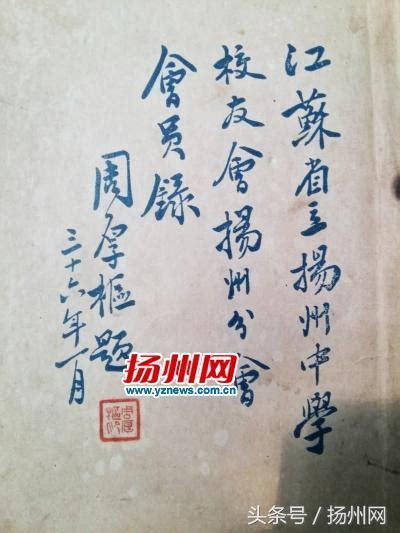 江蘇省立揚州中學
校友會揚州分會
會員錄
周厚樞題
三十六年一月
周厚樞印
扬州网
www.yznews.com.cn
头条号 / 扬州网